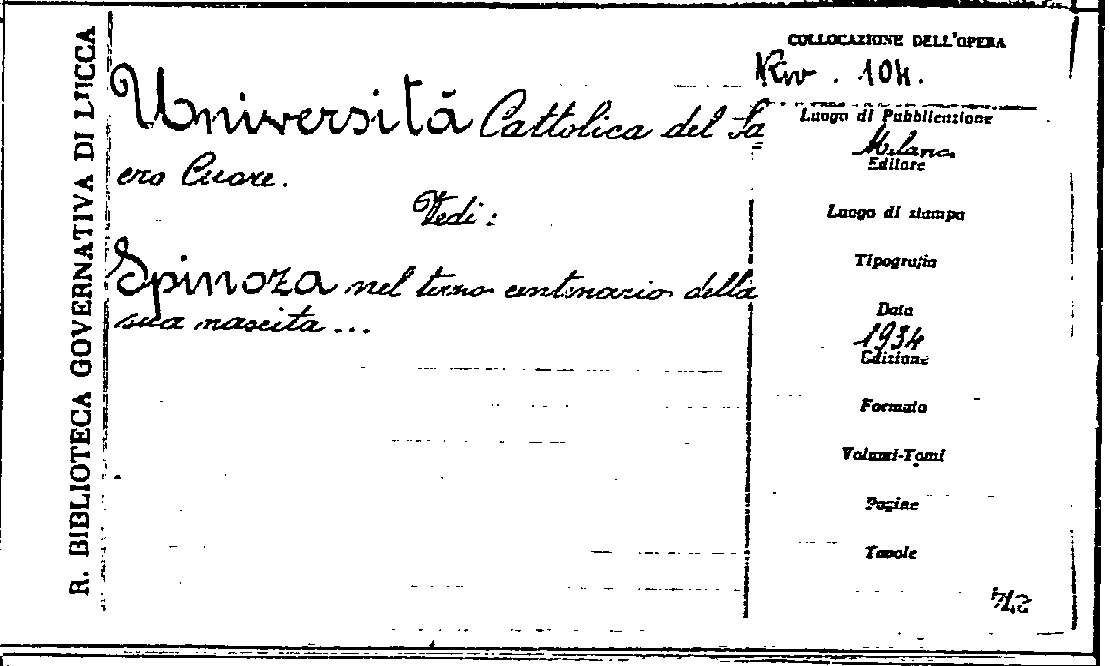 R. BIBLIOTECA GOVERNATIVA DI LUCCA
Università Cattolica del Sa=
cro Cuore.
Vedi:
Spinoza nel terzo centenario della
sua nascita...
COLLOCAZIONE DELL'OPERA
104.
Luogo di Pubblicazione
Milano
Editore
Luogo di stampa
Tipografia
Data
1934
Edizione
Formato
Volumi-Tomi
Pagine
Tavole